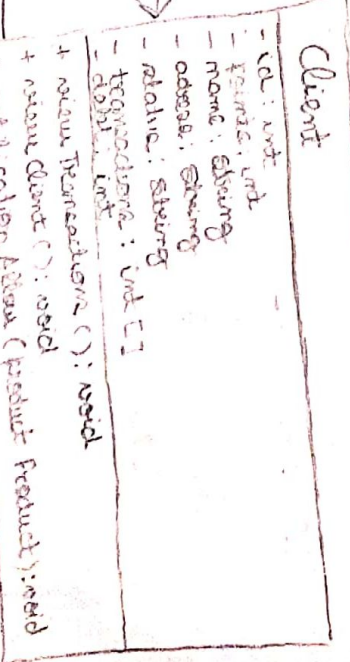 Client
- id : int
- : int
- name : string
- adress : string
- status : string
- transactions : int []
- debt : int
+ view Transactions () : void
+ view Client () : void
(product Product) : void